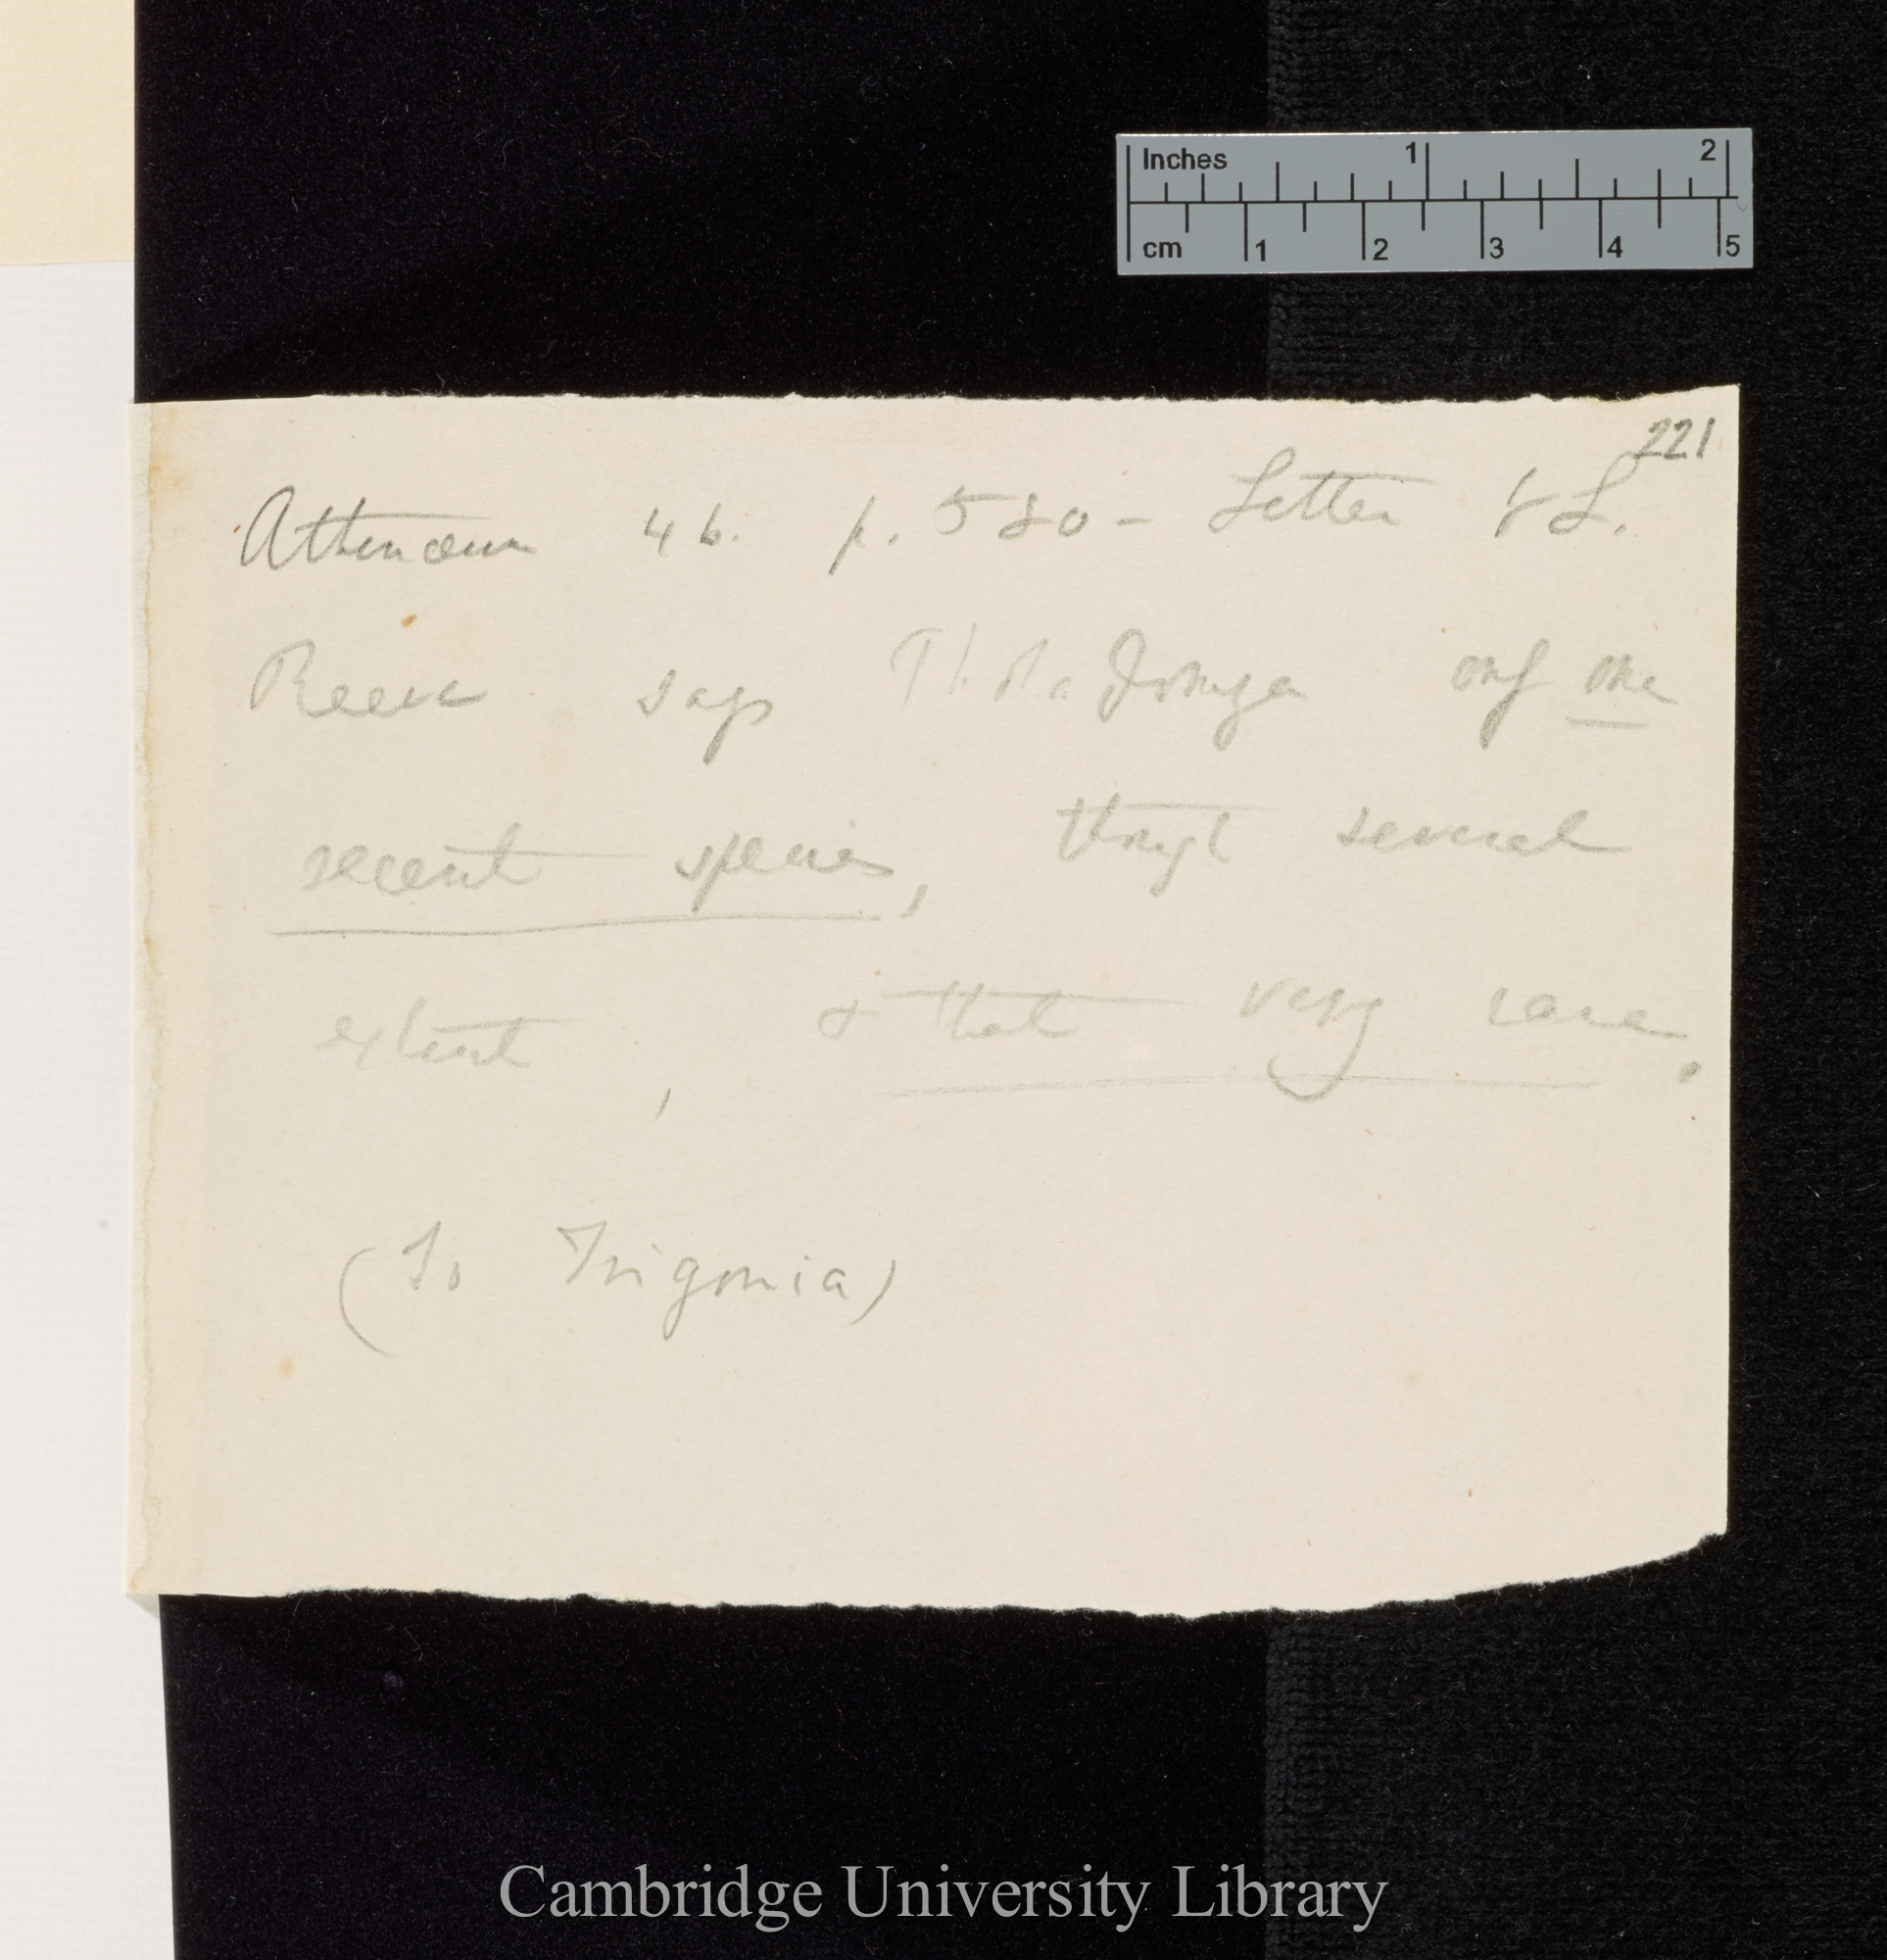 Inches 1 2
cm 1 2 3 4 5
221
Athenæum 46. p. 580 - Letter by L.
Reeve says Pholadomya only one
recent species, though several
extinct, & that very rare.
(To Trigonia)
Cambridge University Library